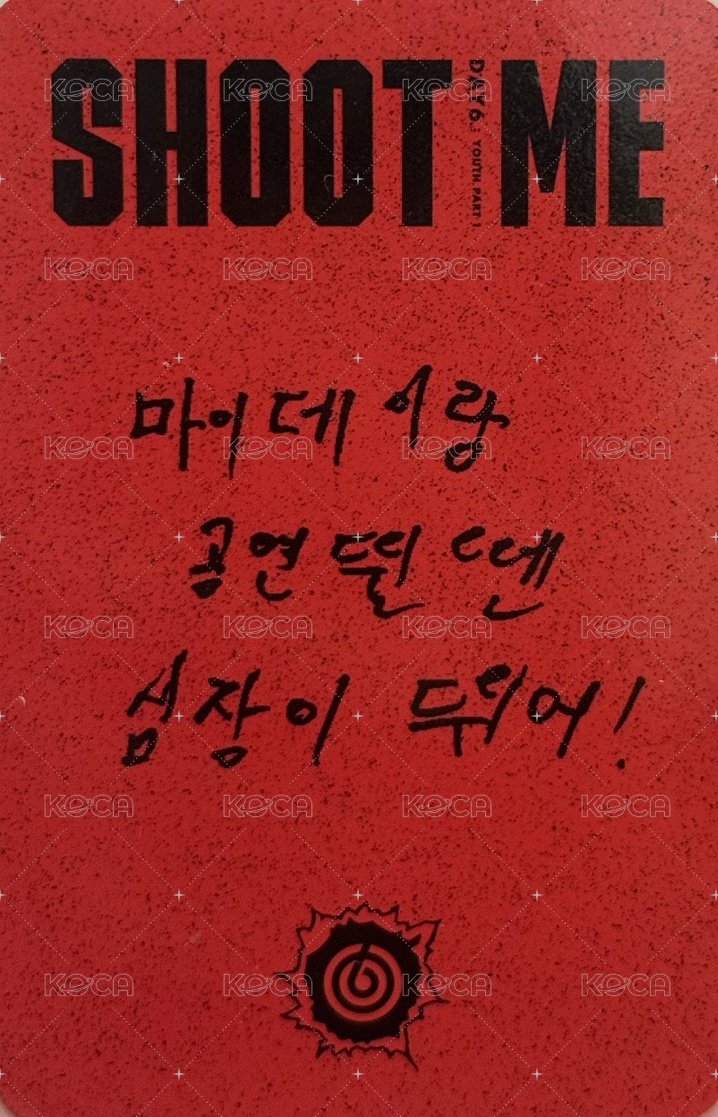 SHOOT ME
DAY6 : YOUTH PART 1
마이데이랑
공연뛸땐
심장이 뛰어!
KOCA